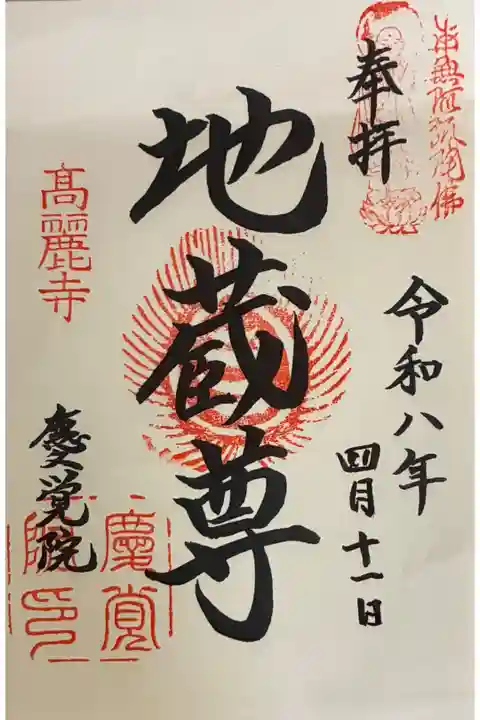 南無阿弥陀佛
奉拝
令和八年
四月十一日
地蔵尊
高麗寺
慶覚院
慶覚
院印